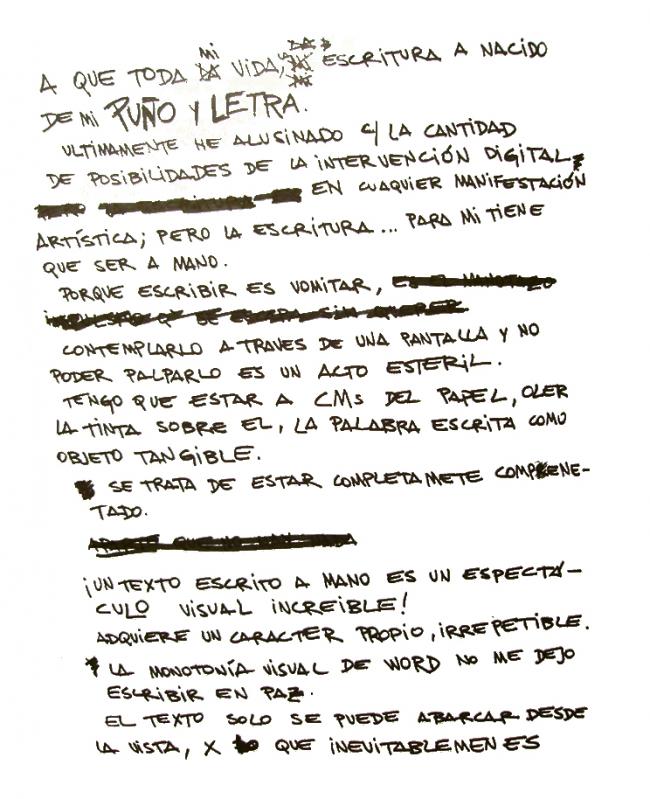 A QUE TODA MI VIDA, ESCRITURA A NACIDO
DE Mi PUÑO Y LETRA.
ULTIMAMENTE HE ALUSINADO C/ LA CANTIDAD
DE POSIBILIDADES DE LA INTERVENCIÓN DIGITAL
EN CUAQUIER MANIFESTACIÓN
ARTÍSTICA; PERO LA ESCRITURA... PARA MI TIENE
QUE SER A MANO.
PORQUE ESCRIBIR ES VOMITAR,
CONTEMPLARLO A TRAVES DE UNA PANTALLA Y NO
PODER PALPARLO ES UN ACTO ESTERIL.
TENGO QUE ESTAR A CMs DEL PAPEL, OLER
LA TINTA SOBRE EL, LA PALABRA ESCRITA COMO
OBJETO TANGIBLE.
SE TRATA DE ESTAR COMPLETAMETE COMPENE-
TADO.
¡UN TEXTO ESCRITO A MANO ES UN ESPECTÁ-
CULO VISUAL INCREIBLE!
ADQUIERE UN CARACTER PROPIO, IRREPETIBLE.
LA MONOTONÍA VISUAL DE WORD NO ME DEJO
ESCRIBIR EN PAZ.
EL TEXTO SOLO SE PUEDE ABARCAR DESDE
LA VISTA, X QUE INEVITABLEMEN ES